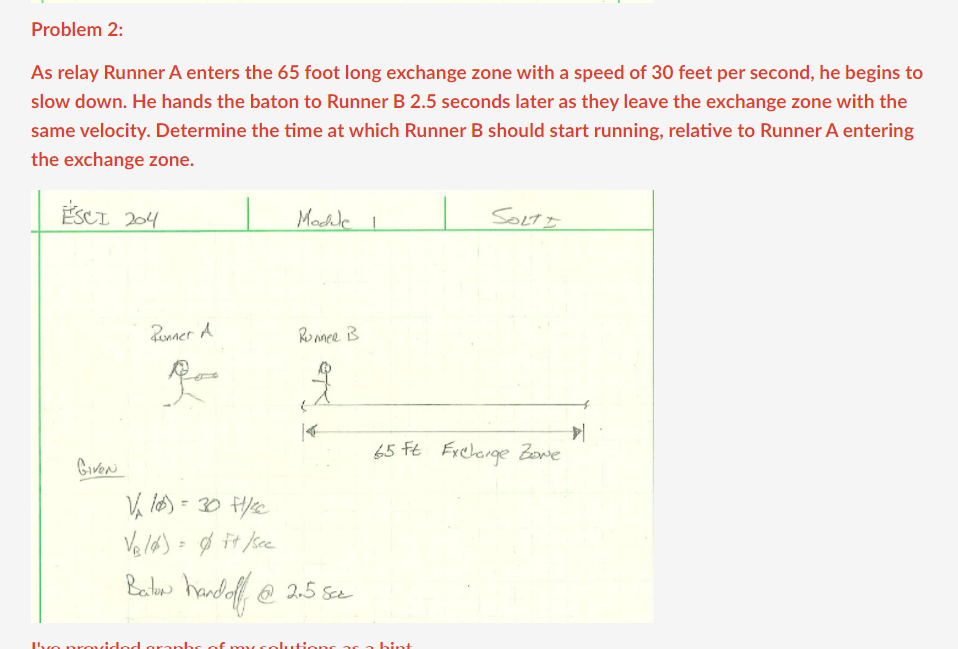 Problem 2:
As relay Runner A enters the 65 foot long exchange zone with a speed of 30 feet per second, he begins to
slow down. He hands the baton to Runner B 2.5 seconds later as they leave the exchange zone with the
same velocity. Determine the time at which Runner B should start running, relative to Runner A entering
the exchange zone.
ESCI 204 Module 1 SOLTI
Runner A Runner B
65 Ft Exchange Zone
Given
VA (ø) = 30 ft/sec
VB (ø) = ø ft/sec
Baton handoff @ 2.5 sec
I've provided graphs of my solutions as a hint